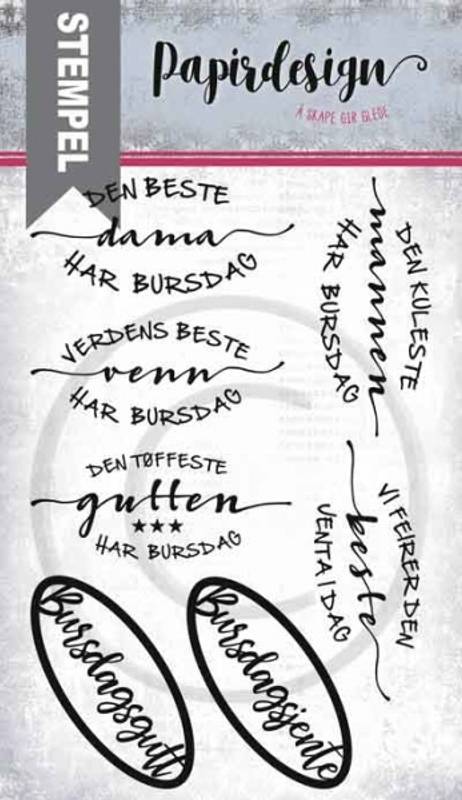 STEMPEL
Papirdesign
Å SKAPE GIR GLEDE
DEN BESTE
dama
HAR BURSDAG
VERDENS BESTE
venn
HAR BURSDAG
DEN TØFFESTE
gutten
HAR BURSDAG
DEN KULESTE
mannen
HAR BURSDAG
VI FEIRER DEN
beste
JENTA I DAG
Bursdagsgutt
Bursdagsjente